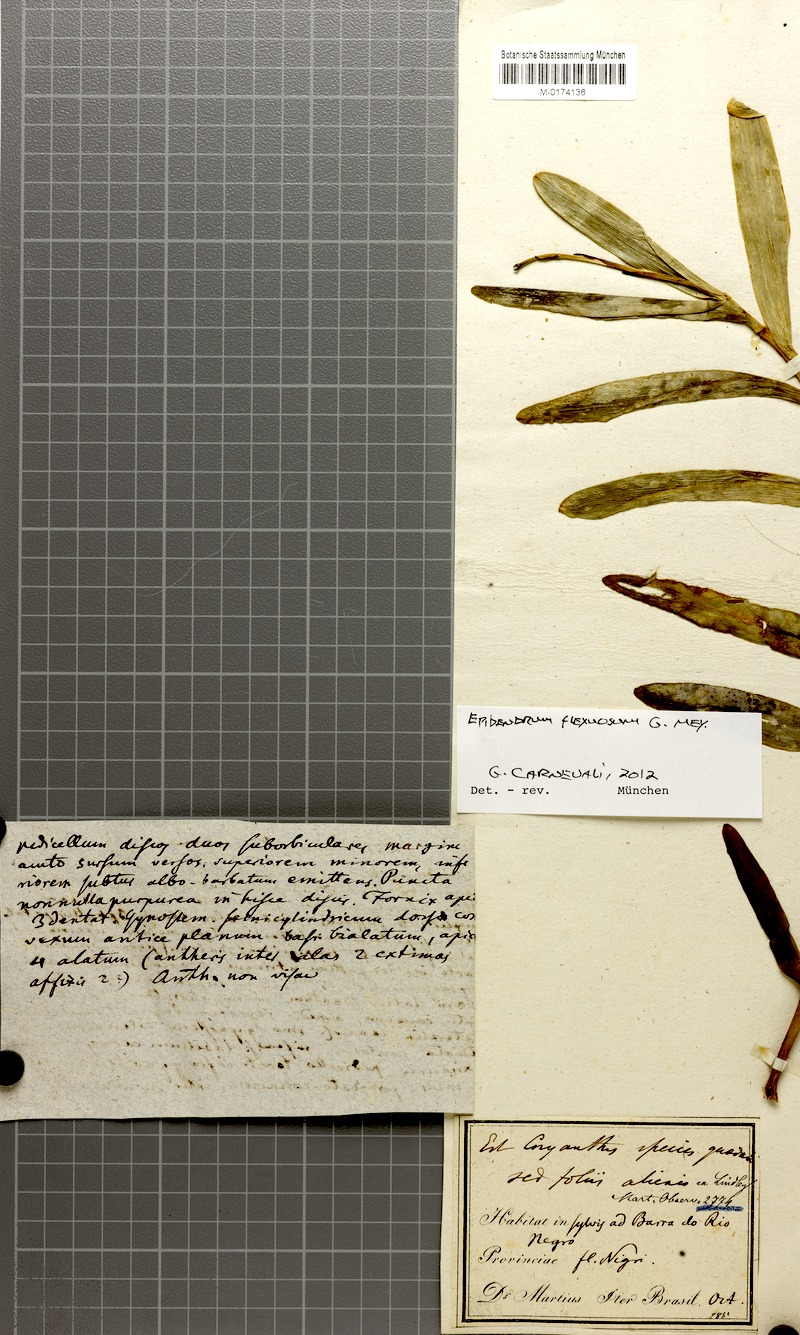 Botanische Staatssammlung München
M-0174136
EPIDENDRUM FLEXUOSUM G. MEY.
G. CARNEVALI, 2012
Det. - rev. München
pedicellum discos duos suborbiculares margine
acuto sursum versos, superiorem minorem, infe
riorem subtus albo-barbatum emittens. Puncta
nonnulla purpurea in hisce discis. Fornix api
3 dentat. Gynostem. semicylindricum dorso con
vexum antice planum basi bialatum, apice
4 alatum (antheris inter alas 2 extimas
affixis 2?) Anth. non visae
Est Coryanthis species quaedam
sed foliis alienis ex Lindley
Mart. Observ. 2774
Habitat in sylvis ad Barra do Rio
Negro
Provinciae fl. Nigri.
Dr. Martius Iter Brasil. Oct.